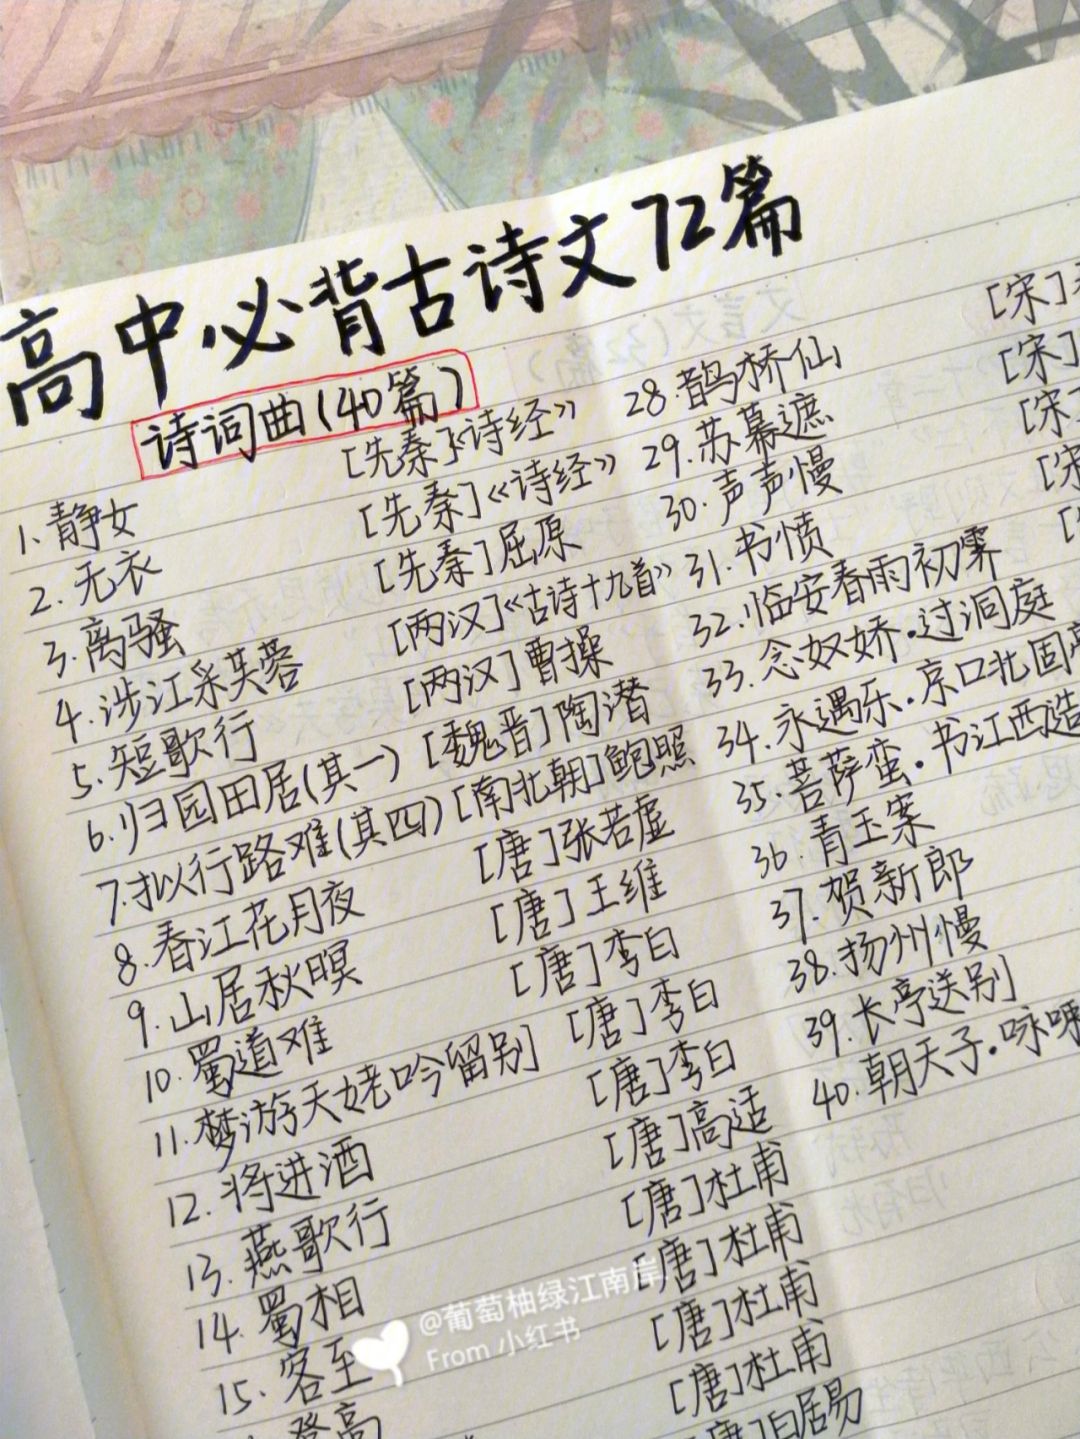 高中必背古诗文72篇
诗词曲(40篇)
1.静女 [先秦]《诗经》
2.无衣 [先秦]《诗经》
3.离骚 [先秦]屈原
4.涉江采芙蓉 [两汉]《古诗十九首》
5.短歌行 [两汉]曹操
6.归园田居(其一) [魏晋]陶潜
7.拟行路难(其四) [南北朝]鲍照
8.春江花月夜 [唐]张若虚
9.山居秋暝 [唐]王维
10.蜀道难 [唐]李白
11.梦游天姥吟留别 [唐]李白
12.将进酒 [唐]李白
13.燕歌行 [唐]高适
14.蜀相 [唐]杜甫
15.客至 [唐]杜甫
登高 [唐]杜甫
[唐]杜甫
[唐]白居易
28.鹊桥仙 [宋]
29.苏幕遮 [宋]
30.声声慢 [宋]
31.书愤 [宋
32.临安春雨初霁
33.念奴娇·过洞庭
34.永遇乐·京口北固
35.菩萨蛮·书江西造
36.青玉案
37.贺新郎
38.扬州慢
39.长亭送别
40.朝天子·咏
@葡萄柚绿江南岸
From 小红书